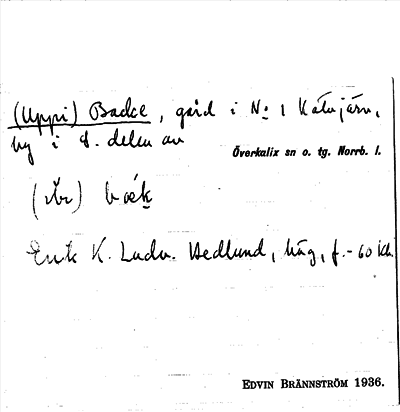 (Uppi) Backe, gård i No 1 Kälvjärv,
by i ö. delen av
Överkalix sn o. tg. Norrb. l.
bæk
Erik K. Ludv. Hedlund, häg, f. -60 Kx
EDVIN BRÄNNSTRÖM 1936.